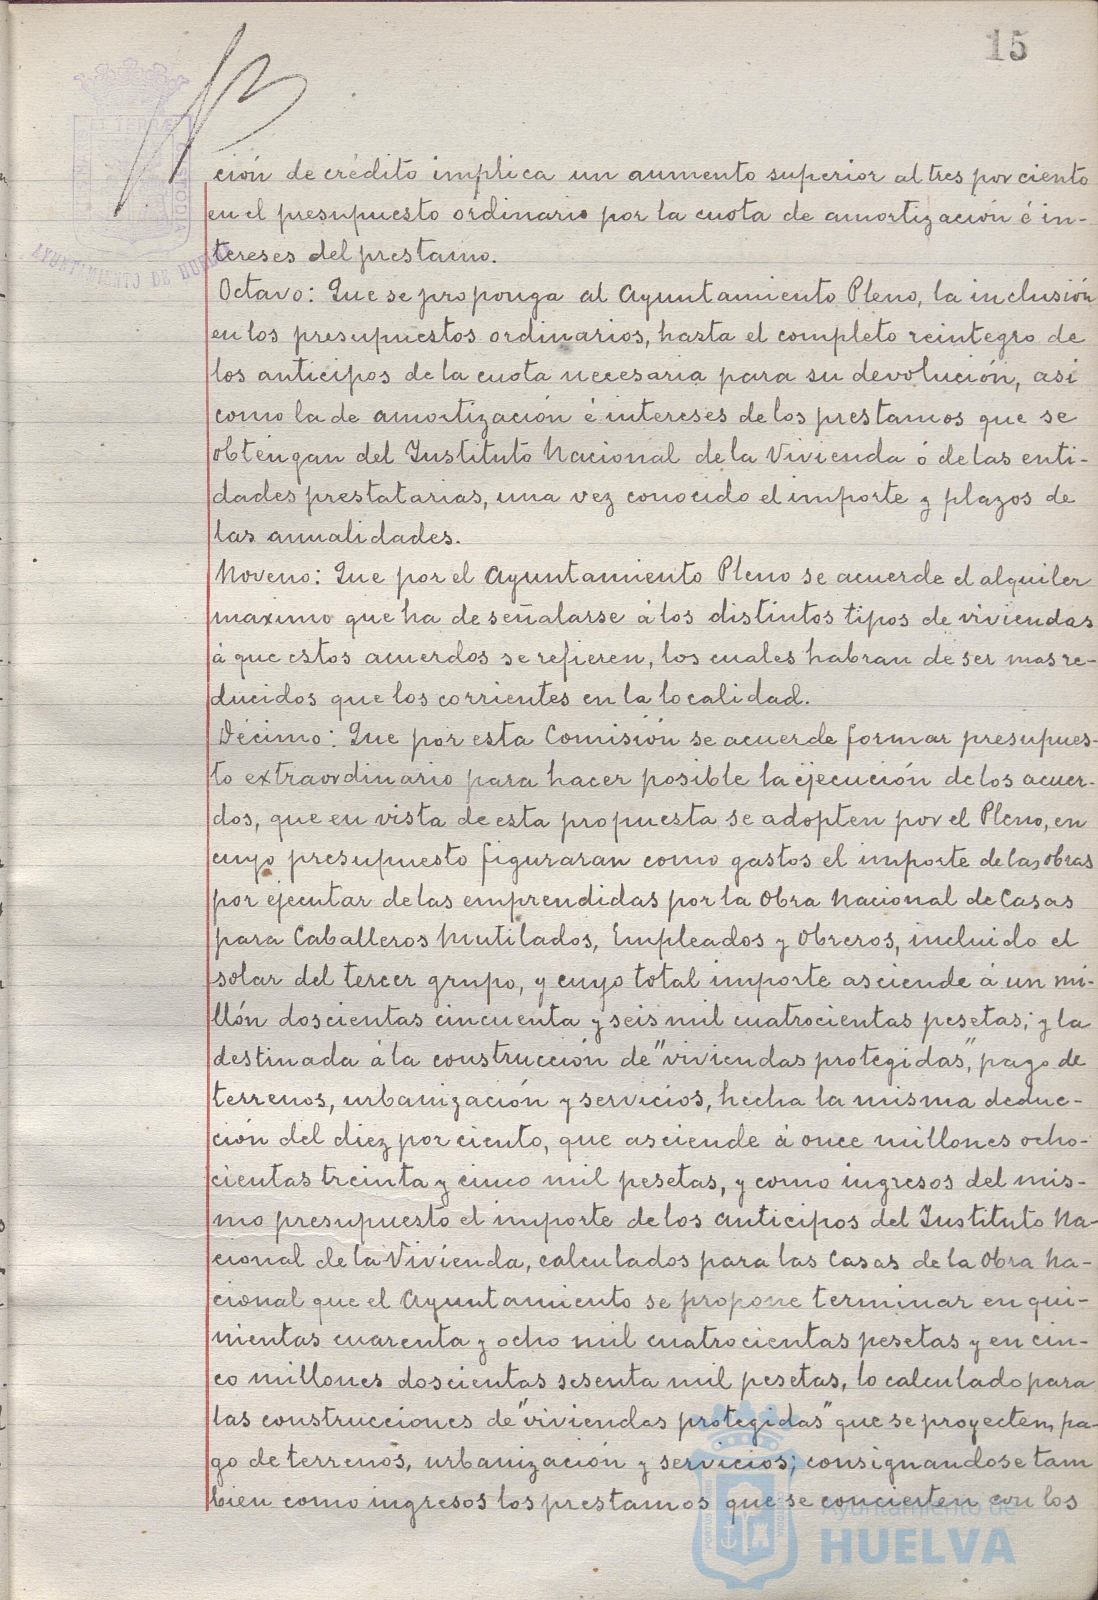 15
ción de crédito implica un aumento superior al tres por ciento
en el presupuesto ordinario por la cuota de amortización é in-
tereses del prestamo.
Octavo: Que se proponga al Ayuntamiento Pleno, la inclusión
en los presupuestos ordinarios, hasta el completo reintegro de
los anticipos de la cuota necesaria para su devolución, así
como la de amortización é intereses de los prestamos que se
obtengan del Instituto Nacional de la Vivienda ó de las enti-
dades prestatarias, una vez conocido el importe y plazos de
las anualidades.
Noveno: Que por el Ayuntamiento Pleno se acuerde el alquiler
maximo que ha de señalarse á los distintos tipos de viviendas
á que estos acuerdos se refieren, los cuales habran de ser mas re-
ducidos que los corrientes en la localidad.
Décimo: Que por esta Comisión se acuerde formar presupues-
to extraordinario para hacer posible la ejecución de los acuer-
dos, que en vista de esta propuesta se adopten por el Pleno, en
cuyo presupuesto figuraran como gastos el importe de las obras
por ejecutar de las emprendidas por la Obra Nacional de Casas
para Caballeros Mutilados, Empleados y Obreros, incluido el
solar del tercer grupo, y cuyo total importe asciende á un mi-
llón doscientas cincuenta y seis mil cuatrocientas pesetas; y la
destinada á la construcción de "viviendas protegidas", pago de
terrenos, urbanización y servicios, hecha la misma deduc-
ción del diez por ciento, que asciende á once millones ocho-
cientas treinta y cinco mil pesetas, y como ingresos del mis-
mo presupuesto el importe de los anticipos del Instituto Na-
cional de la Vivienda, calculados para las Casas de la Obra Na-
cional que el Ayuntamiento se propone terminar en qui-
nientas cuarenta y ocho mil cuatrocientas pesetas y en cin-
co millones doscientas sesenta mil pesetas, lo calculado para
las construcciones de "viviendas protegidas" que se proyecten, pa-
go de terrenos, urbanización y servicios; consignandose tam
bien como ingresos los prestamos que se concierten con los
AYUNTAMIENTO DE HUELVA
Ayuntamiento de
HUELVA